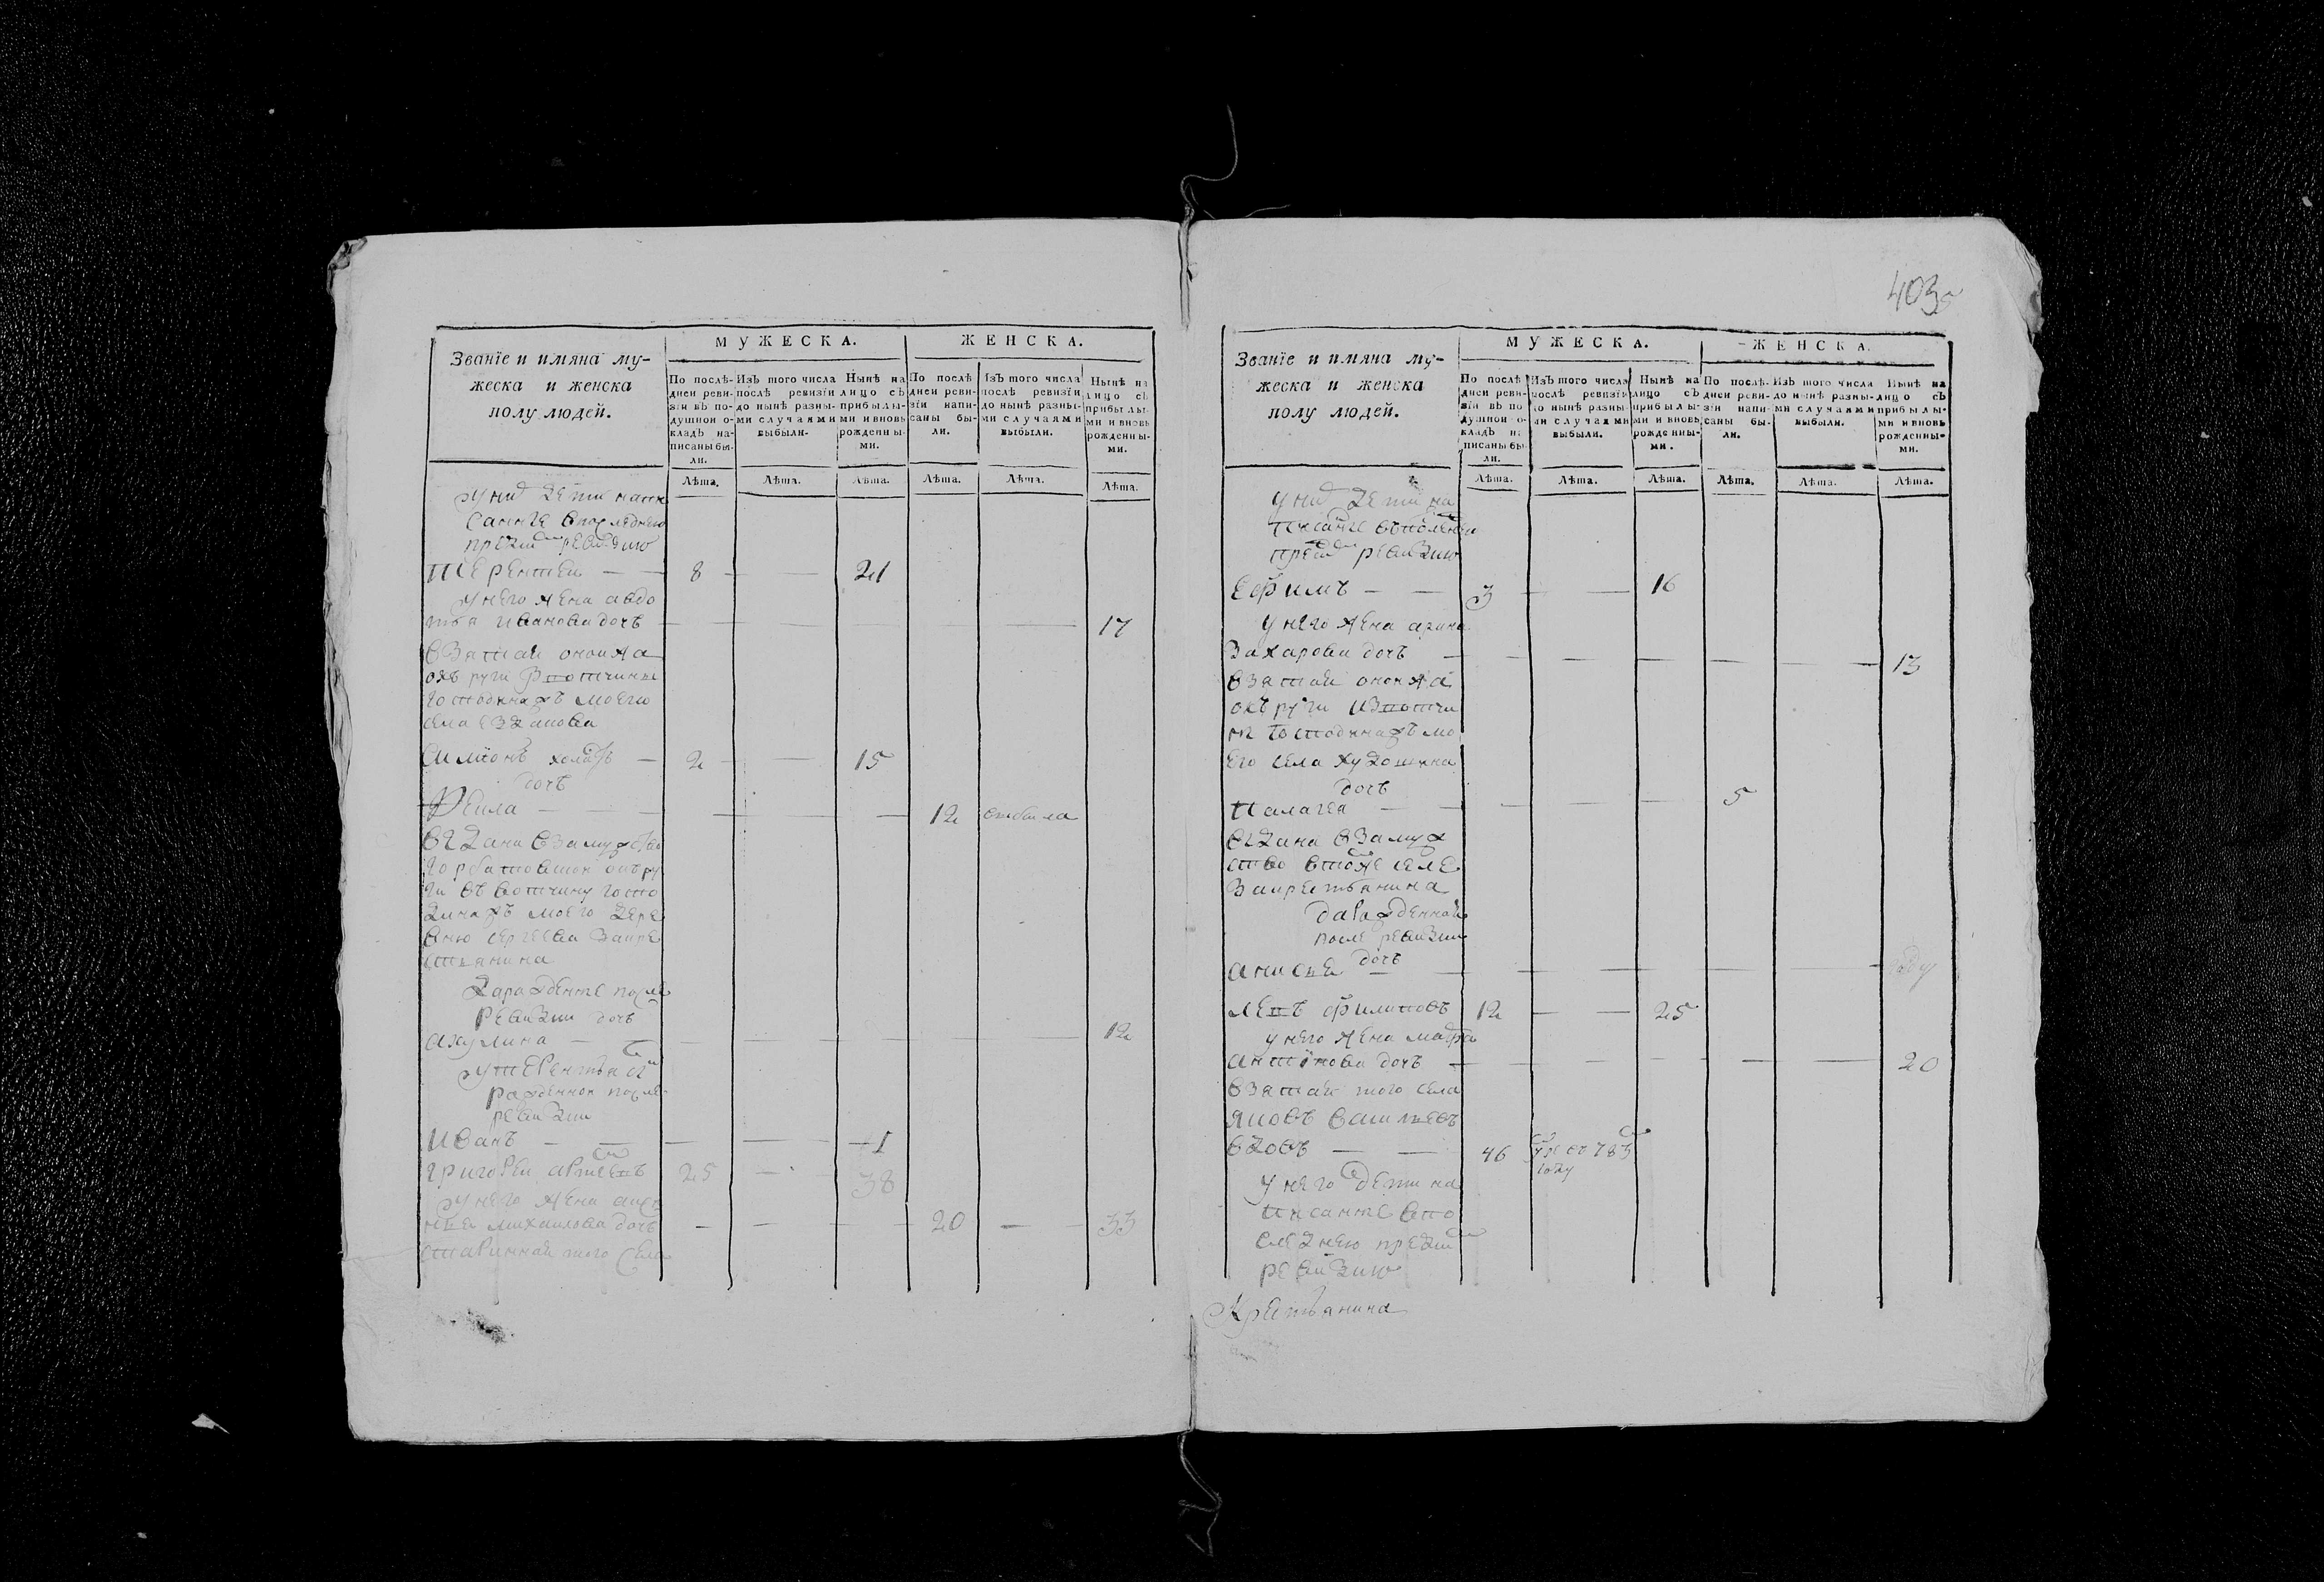 403
Званїе и имяна му-
жеска и женска
полу людей.
МУЖЕСКА.
ЖЕНСКА.
По послѣ-
дней реви-
зіи въ по-
душной о-
кладъ на-
писаны бы-
ли.
Изъ того числа
послѣ ревизіи
до нынѣ разны-
ми случаями
выбыли.
Нынѣ на
лицо съ
прибылы-
ми и вновь
рожденны-
ми.
По послѣ
дней реви-
зіи напи-
саны бы-
ли.
Изъ того числа
послѣ ревизіи
до нынѣ разны-
ми случаями
выбыли.
Нынѣ на
лицо съ
прибылы-
ми и вновь
рожденны-
ми.
Лѣта. Лѣта. Лѣта. Лѣта. Лѣта. Лѣта.
у них дети напи
санные впоследнею
пред ревизию
терентей — — 8 — — 21
у него жена авдо
тья иванова дочь — — 17
взятая
округи вотчины
господина ж моего
села
симионъ холостъ — 2 — — 15
дочь
— — 12 выбыла
выдана взамужство
горбатовской округи
въ вотчину госпо
дина жъ моего дере
вню сергеева закре
стьянина
да рожденные после
ревизии дочь
акулина — — 12
у терентья сын
рожденной после
ревизии
иванъ — — 1
григорей артемьевъ 25 — 38
у него жена
михаилова дочь — — 20 — 33
старинная того села
Званїе и имяна му-
жеска и женска
полу людей.
МУЖЕСКА.
ЖЕНСКА.
По послѣ
дней реви-
зіи въ по
душной о-
кладъ на
писаны бы-
ли.
Изъ того числа
послѣ ревизіи
до нынѣ разны-
ми случаями
выбыли.
Нынѣ на
лицо съ
прибылы-
ми и вновь
рожденны-
ми.
По послѣ-
дней реви-
зіи напи-
саны бы-
ли.
Изъ того числа
до нынѣ разны-
ми случаями
выбыли.
Нынѣ на
лицо съ
прибылы-
ми и вновь
рожденны-
ми.
Лѣта. Лѣта. Лѣта. Лѣта. Лѣта. Лѣта.
у них дети на
писанные
пред ревизию
ефимъ — — 3 — — 16
у него жена арина
захарова дочь — — 13
взятая
округи из вотчи
ны господина жъ мо
его села худошина
дочь
палагея — — 5
выдана взамуж
ство втом же селе
закрестьянина
да рожденная
после ревизии
дочь
анисья — — году
филиповъ 12 — — 25
у него жена
антонова дочь — — 20
взятая того села
яковъ васильевъ
вдовъ — — 46 умре въ 783
году
у него дети на
писанные впо
следнею пред
ревизию
Крестьянина